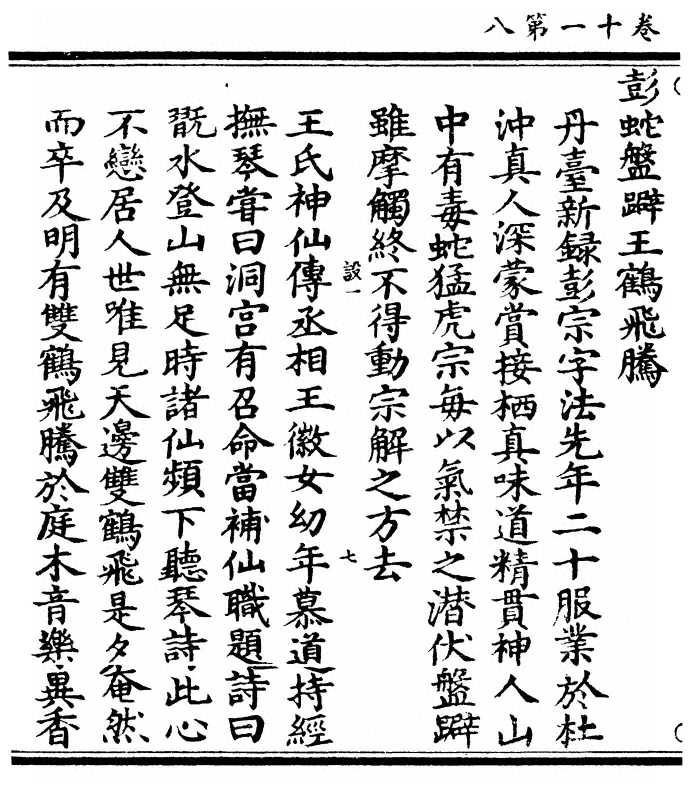 卷十一第八
彭蛇盤躃王鶴飛騰
丹臺新録彭宗字法先年二十服業於杜
沖真人深蒙賞接栖真味道精貫神人山
中有毒蛇猛虎宗每以氣禁之潛伏盤躃
雖摩觸終不得動宗解之方去
設一
七
王氏神仙傳丞相王徽女幼年慕道持經
撫琴甞曰洞宫有召命當補仙職題詩曰
翫水登山無足時諸仙頻下聽琴詩此心
不戀居人世唯見天邊雙鶴飛是夕奄然
而卒及明有雙鶴飛騰於庭木音樂異香